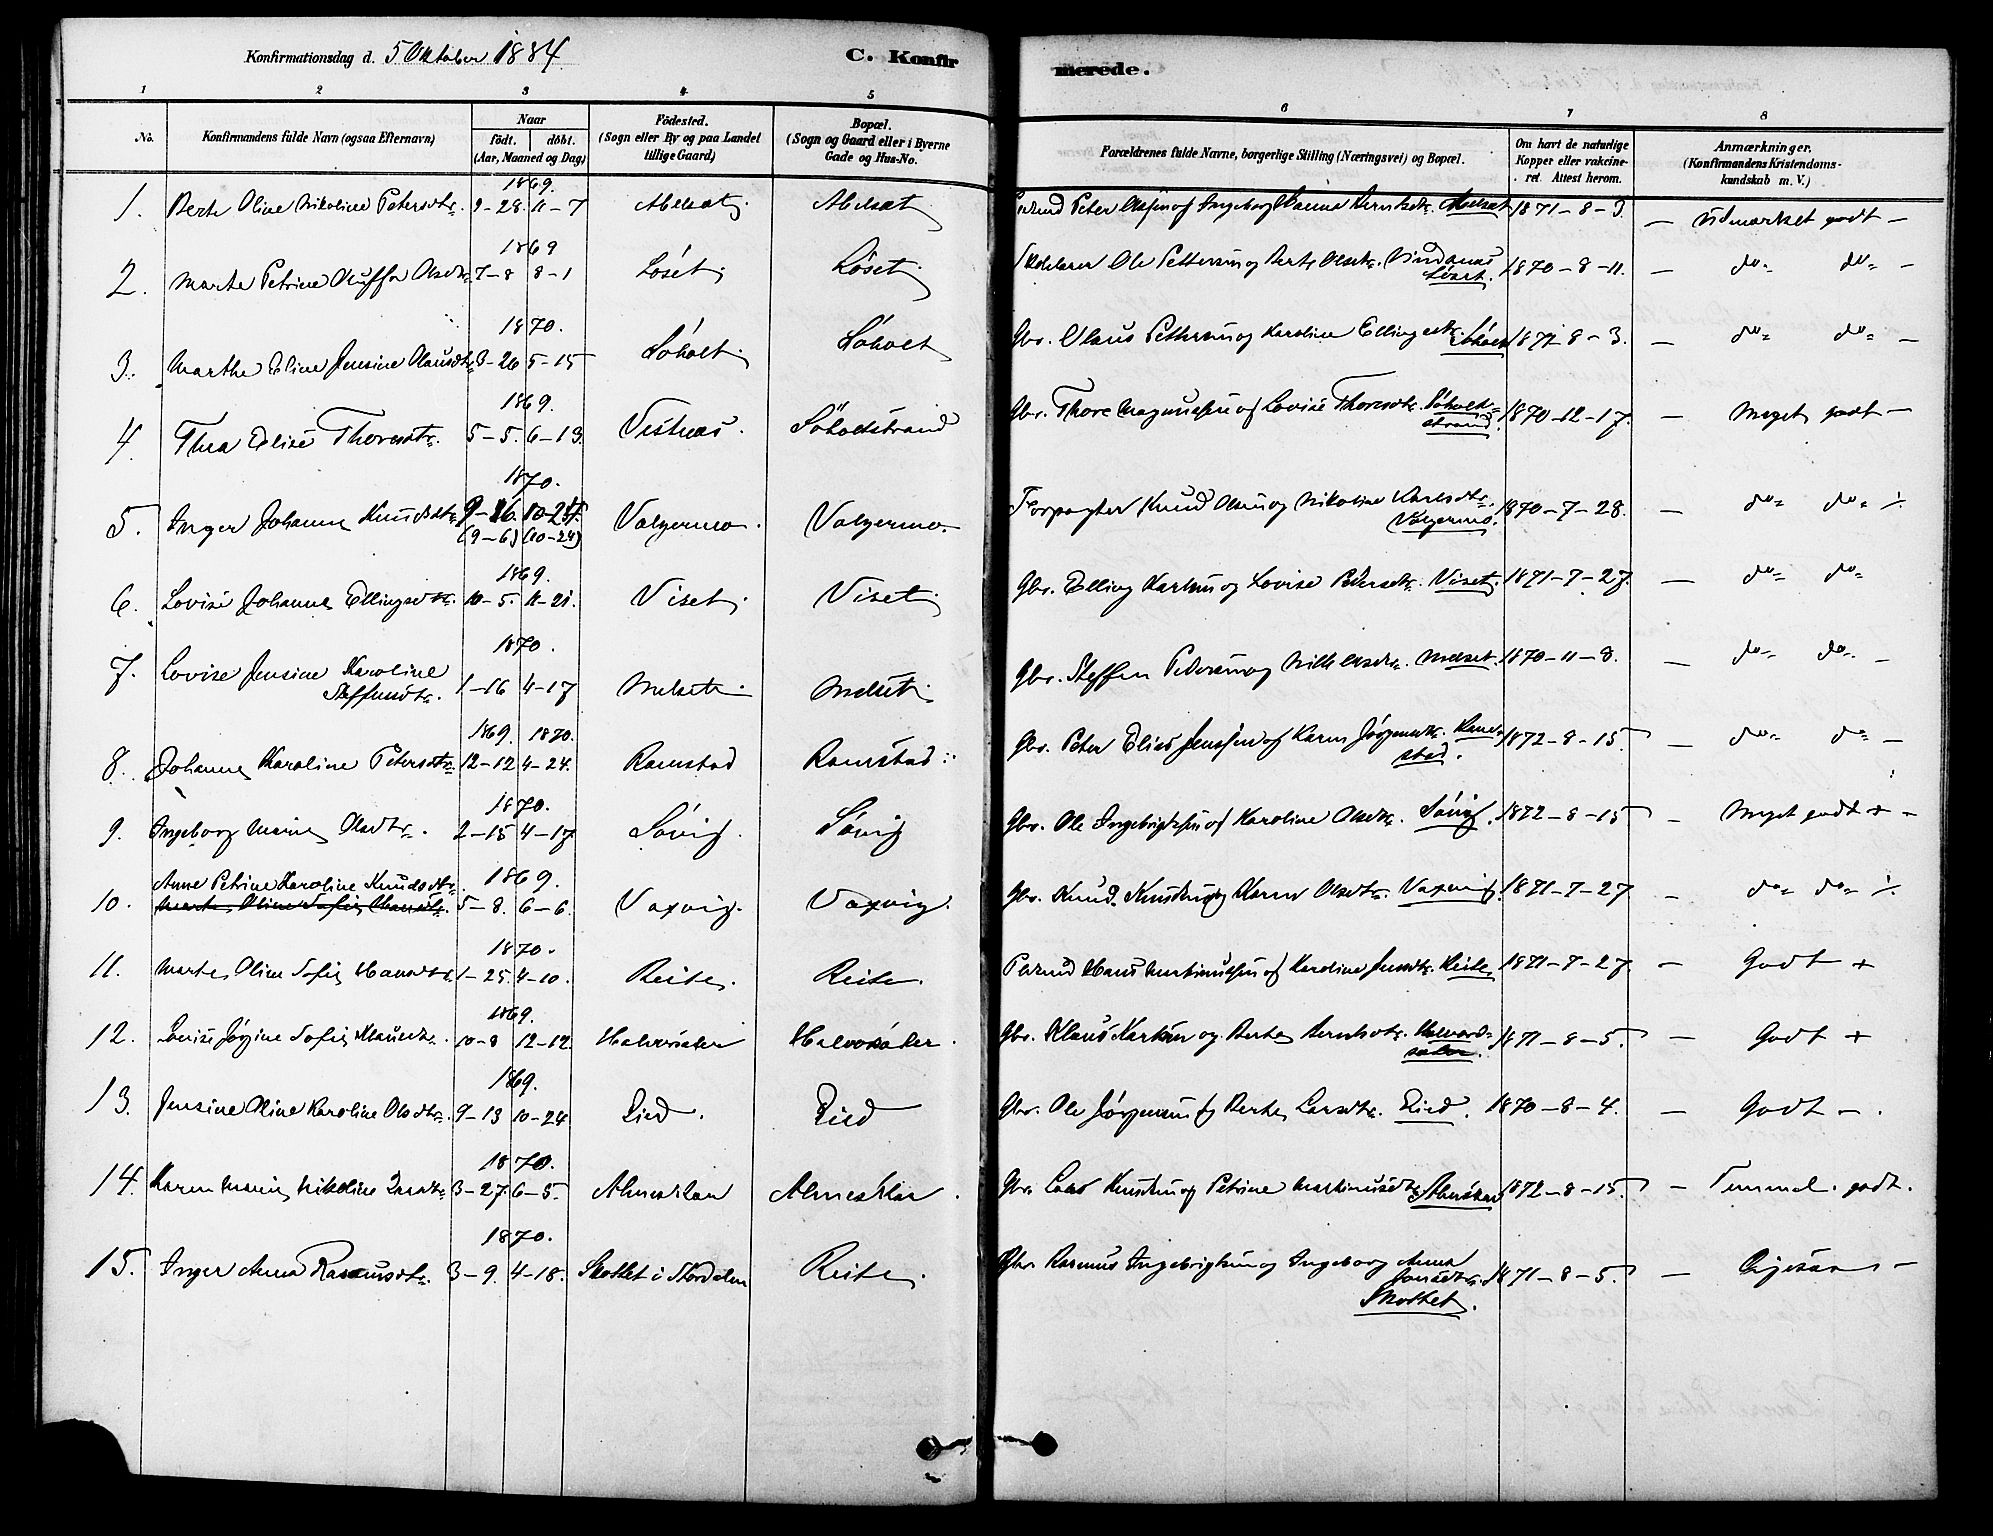 Konfirmationsdag d. 5 Oktober 1884.
C. Konfirmerede.
1 2 3 4 5 6 7 8
No.
Konfirmandens fulde Navn (ogsaa Efternavn)
Naar
födt. döbt.
(Aar, Maaned og Dag)
Födested.
(Sogn eller By og paa Landet
tillige Gaard)
Bopæl.
(Sogn og Gaard eller i Byerne
Gade og Hus-No.
Forældrenes fulde Navne, borgerlige Stilling (Næringsvei) og Bopæl.
Om havt de naturlige
Kopper eller vakcine-
ret. Attest herom.
Anmærkninger.
(Konfirmandens Kristendoms-
kundskab m. V.)
1869.
1. Berte Oline Nikoline Petersdtr. 9-28. 11-7 Abelsæt Abelsæt Peter Olsen og Ingeborg Hanna Berntsdtr. Abelsæt 1871-8-3. - Udmærket godt -
1869
2. Marte Petrine Olsdtr. 7-8 8-1 Löset Löset Ole Pettersen og Berte Olsdtr. Vindsnæs 1870-8-11. - do do -
Löset.
1870.
3. Marthe Eline Jensine Olausdtr. 3-26 5-15 Söholt Söholt Gbr. Olaus Pettersen og Karoline Ellingsdtr. Söholt 1872 8-3. - do do -
1869.
4. Thea Elise Thoresdtr. 5-5. 6-13. Vestnæs. Söholtstrand Gbr. Thore Magnussen og Lovise Thoresdtr. Söholt- 1870-12-17. - Meget godt -
strand.
1870.
5. Inger Johanne Knudsdtr. 9-26. 10-24. Valgermo. Valgermo. Forpagter Knud Olsen og Nikoline Karlsdtr. 1870-7-28. - do do
(9-6) (10-24) Valgermo.
1869.
6. Lovise Johanne Ellingsdtr. 10-5. 11-21. Viset. Viset. Gbr. Elling Karlsen og Lovise Pedersdtr. Viset. 1871-7-27. - do do
1870.
7. Lovise Jensine Karoline
Steffensdtr. 1-16 4-17 Melset. Melset. Gbr. Steffen Pedersen og Olsdtr. Melset. 1870-11-8. - do do -
1869. 1870.
8. Johanne Karoline Petersdtr. 12-12 4-24. Ramstad Ramstad Gbr. Peter Elias Jensen og Karen Jörgensdtr. Ram- 1872-8-15. - do do -
stad.
1870.
9. Ingeborg Marie Olsdtr. 2-15 4-17 Sövig. Sövig Gbr. Ole Ingebrigtsen og Karoline Olsdtr. Sövig. 1872-8-15 - Meget godt + -
Anne Petrine Karoline Knudsdtr. 1869.
10. Marte Oline Sofie Hansdtr. 5-8. 6-6. Vaxvig. Vaxvig. Gbr. Knud Knudsen og Karen Olsdtr. Vaxvig. 1871-7-27. - do do
1870.
11. Marte Oline Sofie Hansdtr. 1-25. 4-10. Reite. Reite. Hans Martinussen og Karoline Jensdtr. Reite 1871-7-27. - Godt +
1869.
12. Lovise Jörgine Sofie Klausdtr. 10-8 12-12. Halvorsäter Halvorsäter. Gbr. Klaus Karlsen og Berte Berntsdtr. Halvord- 1871-8-5. - Godt +
säter.
1869.
13. Jensine Oline Karoline Olsdtr. 9-13 10-24 Lied. Lied Gbr. Ole Jörgensen og Berte Larsdtr. Lied. 1870-8-4. - Godt -.
1870.
14. Karen Marie Nikoline Larsdtr. 3-27. 6-5. Almeskar Almeskar. Gbr. Lars Knudsen og Petrine Martinusdtr. Almeskar 1872-8-15. - Temmel. godt.
1870.
15. Inger Anna Rasmusdtr. 3-9. 4-18. Skotlet i Stordalen Reite. Gbr. Rasmus Ingebrigtsen og Ingeborg Anna
Jonsdtr. 1871-8-5. -
Skotlet.